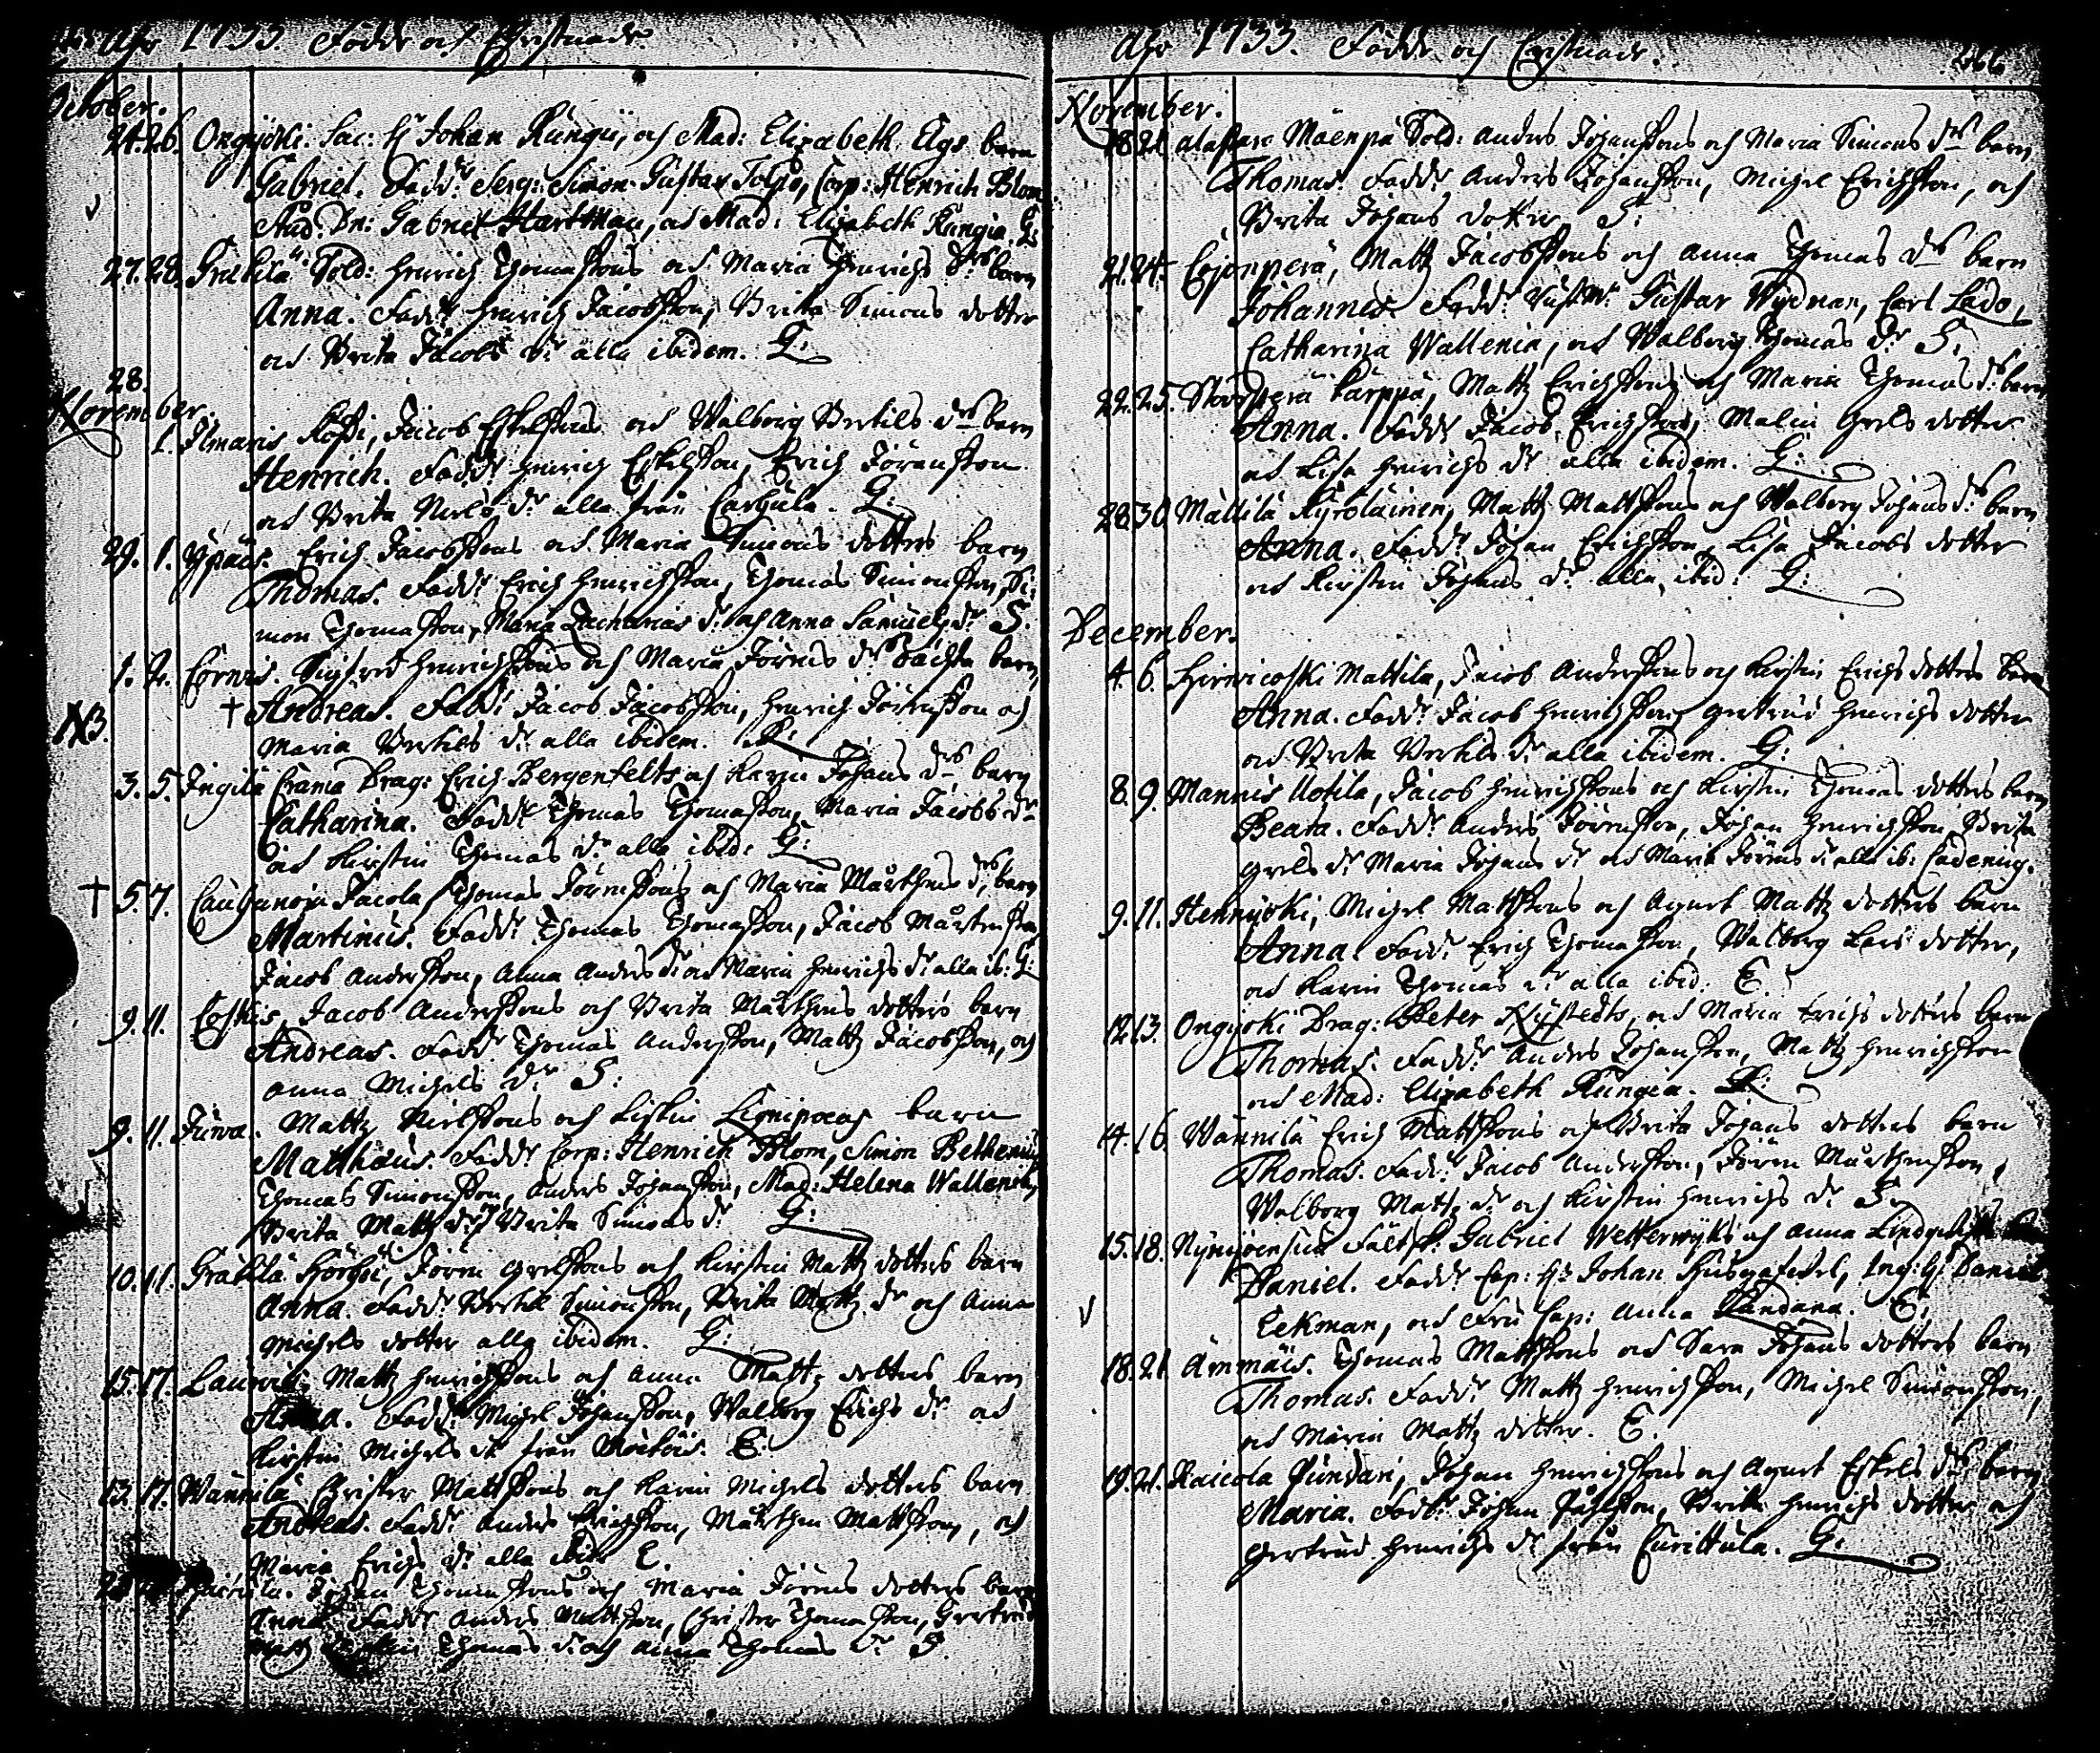 Åhr 1733. Födde och Christnade.
October.
24. 26. Ongijoki. Sac: Hr Johan Rungii, och Mad: Elizabeth Ags barn
Gabriel. Fadd: Serg: Simon Gustav Tolpo, Corp: Henrich Blom
Stud: Dn: Gabriel Hartman, och Mad: Elisabeth Rungia. G:
27. 28. Sold: Henrich Thomassons och Maria Henrichs drs barn
Anna. Fadd: Henrich Jacobsson, Brita Simons dotter
och Brita Jacobs dr alla ibidem. G:
28.
November.
1. Ilmaris Kåssi, Jacob Eskelssons och Walborg Bertils drs barn
Henrich. Fadd: Henrich Eskelsson, Erich Jöransson
och Brita Nils dr alla från Carhula. G:
29. 1. Ypäis. Erich Jacobssons och Maria Simons dotters barn
Thomas. Fadd: Erich Henrichsson, Thomas Simonsson, Si-
mon Thomasson, Maria Zacharias dr och Anna Samuels dr S.
1. 2. Cornis. Sigfred Henrichssons och Maria Jörens drs oächta barn
† Andreas. Fadd: Jacob Jacobsson, Henrich Jörensson och
N3.
Maria Bertils dr alla ibidem. R:
3. 5. Ingila Crama Drag: Erich Bergenfelts och Karin Johans drs barn
Catharina. Fadd: Thomas Thomasson, Maria Jacobs dr
och Kirstin Thomas dr alla ibid: G:
† 5. 7. Cauhanoja Jacola Thomas Jörenssons och Maria Mårthens drs barn
Martinus. Fadd: Thomas Thomasson, Jacob Mårtensson
Jacob Andersson, Anna Anders dr och Maria Henrichs dr alla ib: G:
9. 11. Coskis, Jacob Anderssons och Brita Mårthens dotters barn
Andreas. Fadd: Thomas Andersson, Matz Jacobsson, och
Anna Michels dr S:
9. 11. Juva. Matz Nilssons och barn
Matthæus. Fadd: Corp: Henrich Blom, Simon
Thomas Simonsson, Anders Johansson, Mad: Helena
Brita Matz dr, Brita Simons dr G:
10. 11. Jören Grelssons och Kirstin Matz dotters barn
Anna. Fadd: Bertil Simonsson, Brita Matz dr och Anna
Michels dotter alla ibidem. G:
15. 17. Matz Henrichssons och Anna Matz dotters barn
Fadd: Michel Johansson, Walborg Erichs dr och
Kirstin Michels dr från E:
13. 17. Wännilä Christer Matssons och Karin Michels dotters barn
Andreas. Fadd: Anders Erichsson, Mårthen Matsson, och
Maria Erichs dr alla ibid: E.
Johan Thomassons och Maria Jörens dotters barn
Anna. Fadd: Anders Matsson, Christer Thomasson, Gertrud
Thomas dr och Anna Thomas dr S.
Åhr 1733. Födde och Christnade.
466
November.
18. 21. Alastaro Mäenpä Sold: Anders Johanssons och Maria Simons drs barn
Thomas. Fadd: Anders Johansson, Michel Erichsson, och
Brita Johans dotter S:
21. 24. Matz Jacobssons och Anna Thomas drs barn
Johannes. Fadd: Gustav Wydman, Carl Lado,
Catharina Wallenia, och Walborg Thomas dr S:
22. 25. Kärppä, Matz Erichssons och Maria Thomas drs barn
Anna. Fadd: Jacob Erichsson, Malin Grels dotter
och Lisa Henrichs dr alla ibidem. G:
28. 30. Mällilä Kyröläinen, Matz Matssons och Walborg Johans drs barn
Anna. Fadd: Johan Erichsson, Lisa Jacobs dotter
och Kirstin Johans dr alla ibid: G:
December.
4. 6. Hirvicoski Mattila, Jacob Anderssons och Kirstin Erichs dotters barn
Anna. Fadd: Jacob Henrichsson, Gertrud Henrichs dotter
och Brita Bertils dr alla ibidem. G:
8. 9. Mannis Uotila, Jacob Henrichssons och Kirstin Thomas dotters barn
Beata. Fadd: Anders Jörensson, Johan Henrichsson, Brita
Grels dr Maria Johans dr och Maria Jörens dr alla ib: Cadenius.
9. 11. Hennijoki, Michel Matssons och Agnet Matz dotters barn
Anna. Fadd: Erich Thomasson, Walborg Lars dotter,
och Karin Thomas dr alla ibid. E
12. 13. Ongijoki Drag: Peter Nystedts, och Maria Erichs dotters barn
Thomas. Fadd: Anders Johansson, Matz Henrichsson
och Mad: Elizabeth Rungia. R:
14. 16. Wännilä Erich Matssons och Brita Johans dotters barn
Thomas. Fadd: Jacob Andersson, Jören Mårthensson,
Walborg Matz dr och Kirstin Henrichs dr S.
15. 18. Gabriel Wetterwyks och Anna
Daniel. Fadd: Cap: Hr Johan Husgafwel, Daniel
Eekman, och Fru Cap: Anna E:
18. 21. Ämmäis. Thomas Matssons och Sara Johans dotters barn
Thomas. Fadd: Matz Henrichsson, Michel Simonsson,
och Maria Matz dotter. E.
19. 21. Raicola Pundari, Johan Henrichssons och Agnet Eskels drs barn
Maria. Fadd: Johan Påhlsson, Brita Henrichs dotter och
Gertrud Henrichs dr från Curittula. G: